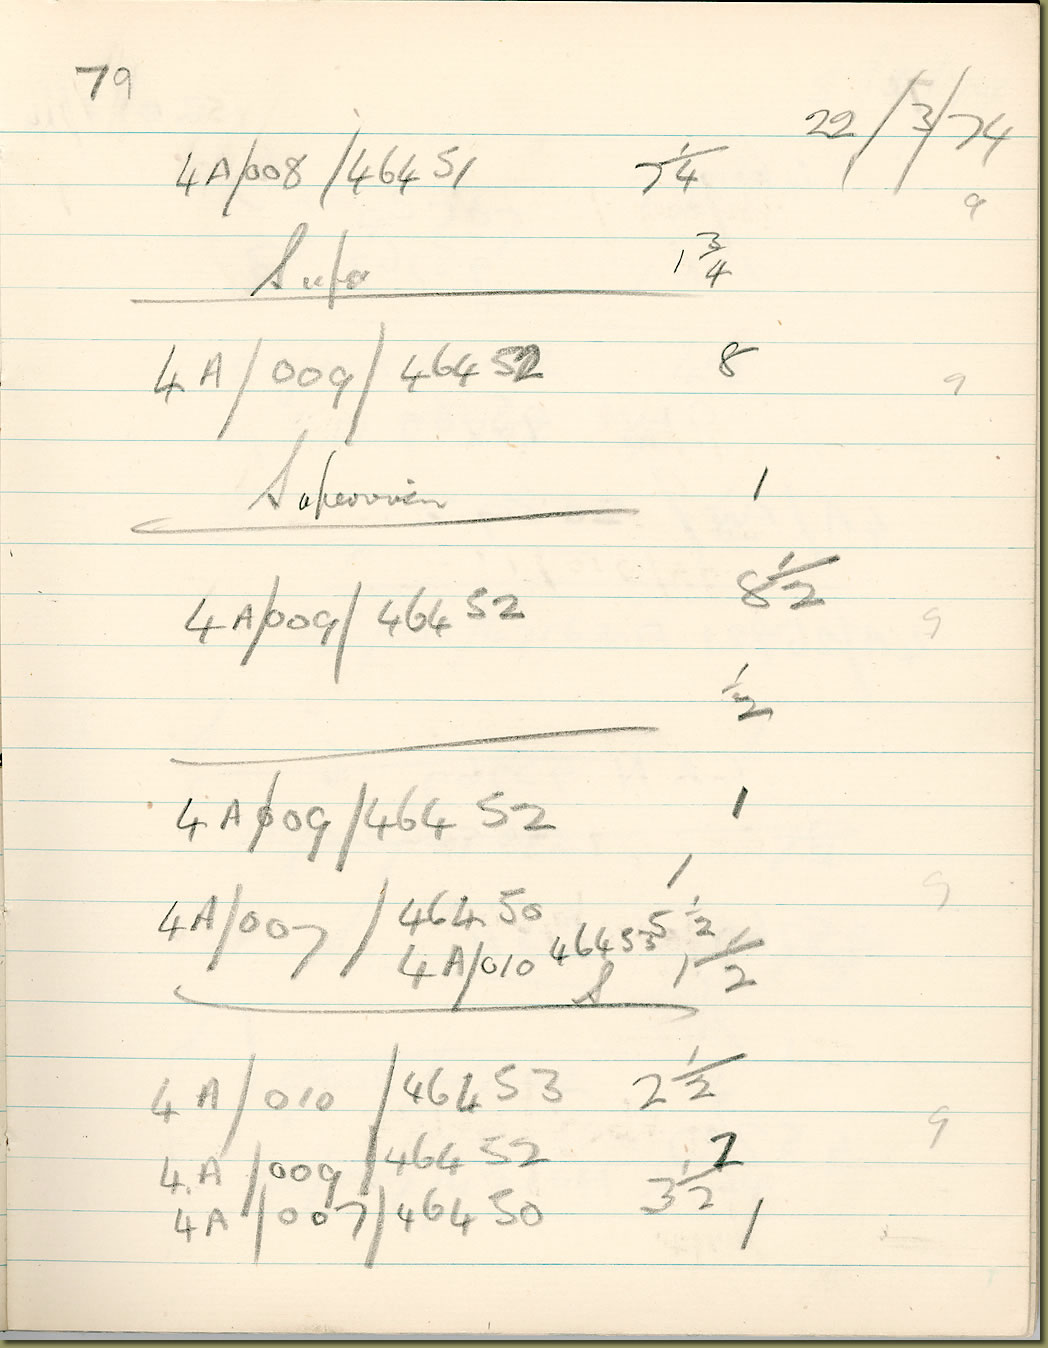 79
22/3/74
4A/008/46451 7 1/4
9
Supr 1 3/4
4A/009/46452 8
9
Supervision 1
4A/009/46452 8 1/2
9
1/2
4A/009/46452 1
1
9
4A/007/46450 5 1/2
4A/010 46453 S 1 1/2
4A/010/46453 2 1/2
9
4A/009/46452 2
3 1/2
4A/007/46450 1